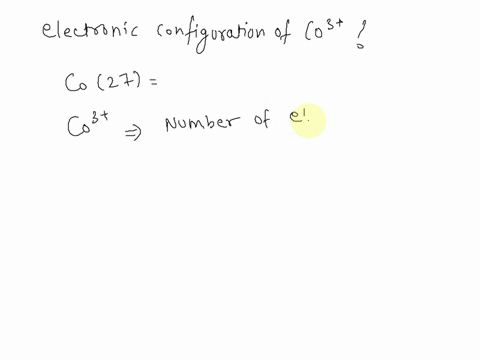 electronic configuration of Co³⁺ ?
Co (27) =
Co³⁺ ⇒ Number of